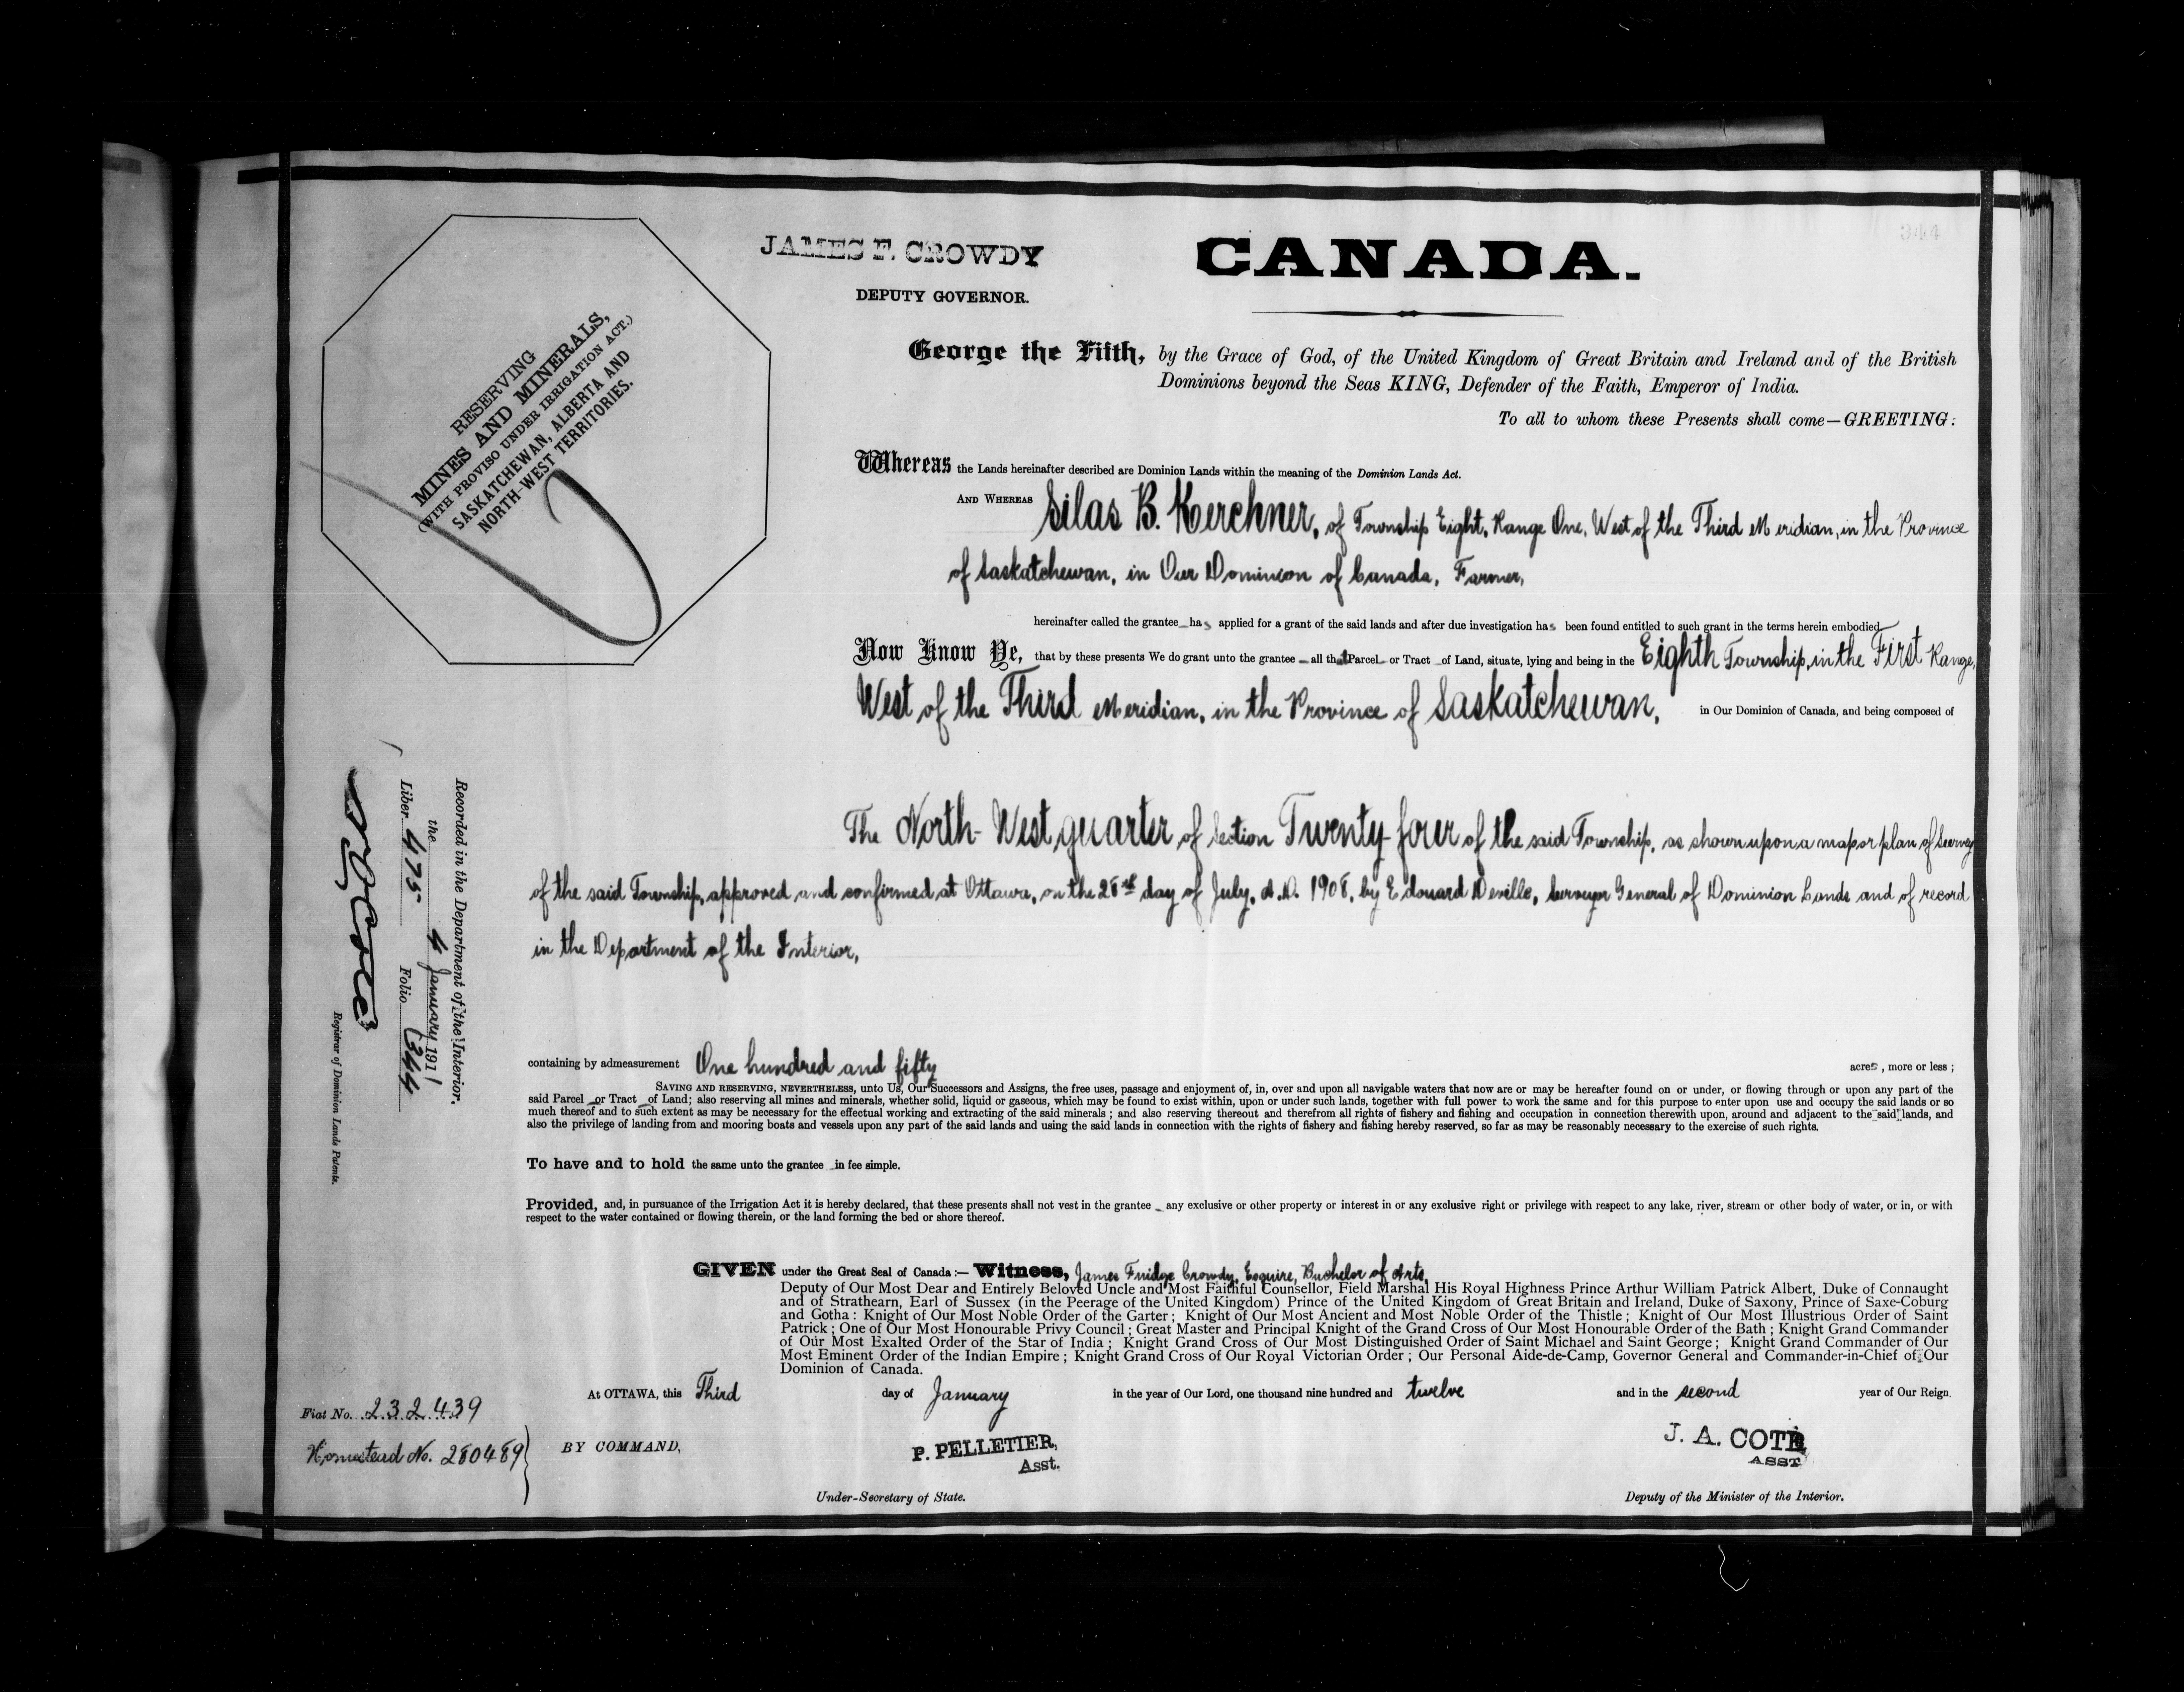 344
JAMES F. CROWDY
DEPUTY GOVERNOR.
CANADA.
RESERVING
MINES AND MINERALS,
(WITH PROVISO UNDER IRRIGATION ACT.)
SASKATCHEWAN, ALBERTA AND
NORTH-WEST TERRITORIES.
George the Fifth, by the Grace of God, of the United Kingdom of Great Britain and Ireland and of the British
Dominions beyond the Seas KING, Defender of the Faith, Emperor of India.
To all to whom these Presents shall come—GREETING:
Whereas the Lands hereinafter described are Dominion Lands within the meaning of the Dominion Lands Act.
AND WHEREAS Silas B. Kerchner, of Township Eight, Range One, West of the Third Meridian, in the Province
of Saskatchewan, in Our Dominion of Canada, Farmer,
hereinafter called the grantee has applied for a grant of the said lands and after due investigation has been found entitled to such grant in the terms herein embodied
Now Know Ye, that by these presents We do grant unto the grantee all that Parcel or Tract of Land, situate, lying and being in the Eighth Township, in the First Range,
West of the Third Meridian, in the Province of Saskatchewan, in Our Dominion of Canada, and being composed of
The North-West quarter of Section Twenty-four of the said Township, as shown upon a map or plan of Survey
of the said Township, approved and confirmed at Ottawa, on the 28th day of July, A.D. 1908, by Edouard Deville, Surveyor General of Dominion Lands and of record
in the Department of the Interior,
containing by admeasurement One hundred and fifty acres, more or less;
SAVING AND RESERVING, NEVERTHELESS, unto Us, Our Successors and Assigns, the free uses, passage and enjoyment of, in, over and upon all navigable waters that now are or may be hereafter found on or under, or flowing through or upon any part of the
said Parcel or Tract of Land; also reserving all mines and minerals, whether solid, liquid or gaseous, which may be found to exist within, upon or under such lands, together with full power to work the same and for this purpose to enter upon use and occupy the said lands or so
much thereof and to such extent as may be necessary for the effectual working and extracting of the said minerals; and also reserving thereout and therefrom all rights of fishery and fishing and occupation in connection therewith upon, around and adjacent to the said lands, and
also the privilege of landing from and mooring boats and vessels upon any part of the said lands and using the said lands in connection with the rights of fishery and fishing hereby reserved, so far as may be reasonably necessary to the exercise of such rights.
To have and to hold the same unto the grantee in fee simple.
Provided, and, in pursuance of the Irrigation Act it is hereby declared, that these presents shall not vest in the grantee any exclusive or other property or interest in or any exclusive right or privilege with respect to any lake, river, stream or other body of water, or in, or with
respect to the water contained or flowing therein, or the land forming the bed or shore thereof.
GIVEN under the Great Seal of Canada:— Witness, James Fuidge Crowdy, Esquire, Bachelor of Arts,
Deputy of Our Most Dear and Entirely Beloved Uncle and Most Faithful Counsellor, Field Marshal His Royal Highness Prince Arthur William Patrick Albert, Duke of Connaught
and of Strathearn, Earl of Sussex (in the Peerage of the United Kingdom) Prince of the United Kingdom of Great Britain and Ireland, Duke of Saxony, Prince of Saxe-Coburg
and Gotha: Knight of Our Most Noble Order of the Garter; Knight of Our Most Ancient and Most Noble Order of the Thistle; Knight of Our Most Illustrious Order of Saint
Patrick; One of Our Most Honourable Privy Council; Great Master and Principal Knight of the Grand Cross of Our Most Honourable Order of the Bath; Knight Grand Commander
of Our Most Exalted Order of the Star of India; Knight Grand Cross of Our Most Distinguished Order of Saint Michael and Saint George; Knight Grand Commander of Our
Most Eminent Order of the Indian Empire; Knight Grand Cross of Our Royal Victorian Order; Our Personal Aide-de-Camp, Governor General and Commander-in-Chief of Our
Dominion of Canada.
At OTTAWA, this Third day of January in the year of Our Lord, one thousand nine hundred and twelve and in the second year of Our Reign.
BY COMMAND,
P. PELLETIER,
Asst.
Under-Secretary of State.
J. A. COTE
ASST
Deputy of the Minister of the Interior.
Recorded in the Department of the Interior,
the 4 January 1911
Liber 475 Folio 344
Registrar of Dominion Lands Patents.
Fiat No. 232439
Homestead No. 280489